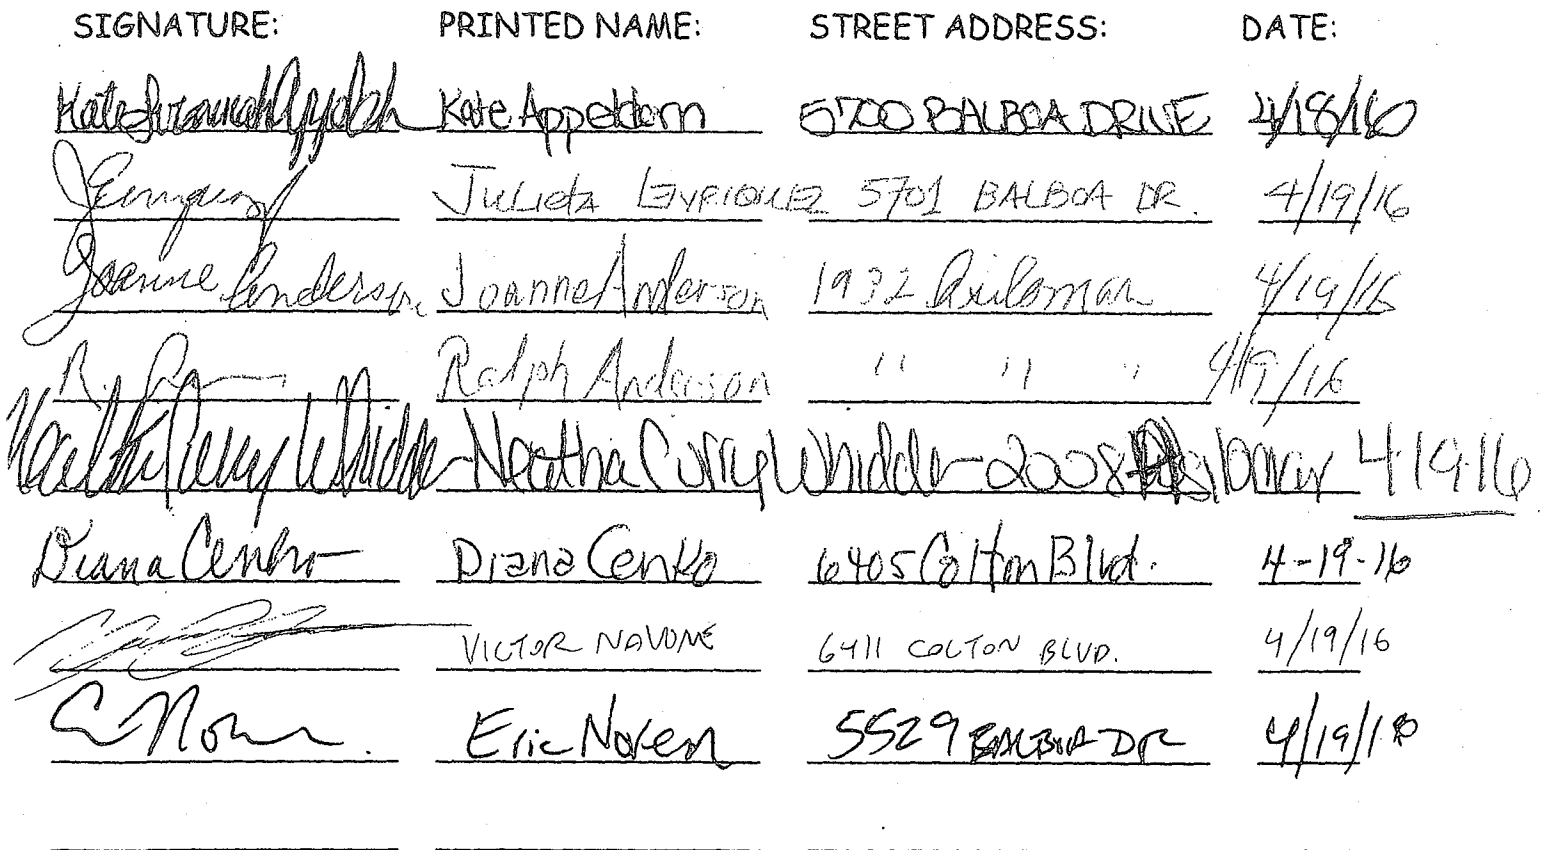 SIGNATURE: PRINTED NAME: STREET ADDRESS: DATE:
Kate Appeldorn 5700 BALBOA DRIVE 4/18/16
Julieta ENRIQUEZ 5701 BALBOA DR. 4/19/16
Joanne Anderson Joanne Anderson 1932 Asilomar 4/19/16
R. Ralph Anderson " " " 4/19/16
Curry Whidden Neitha Curry Whidden 2008 Asilomar 4.19.16
Diana Cenko Diana Cenko 6405 Colton Blvd. 4-19-16
VICTOR NAVONE 6411 COLTON BLVD. 4/19/16
Eric Noren 5529 BALBOA DR 4/19/16